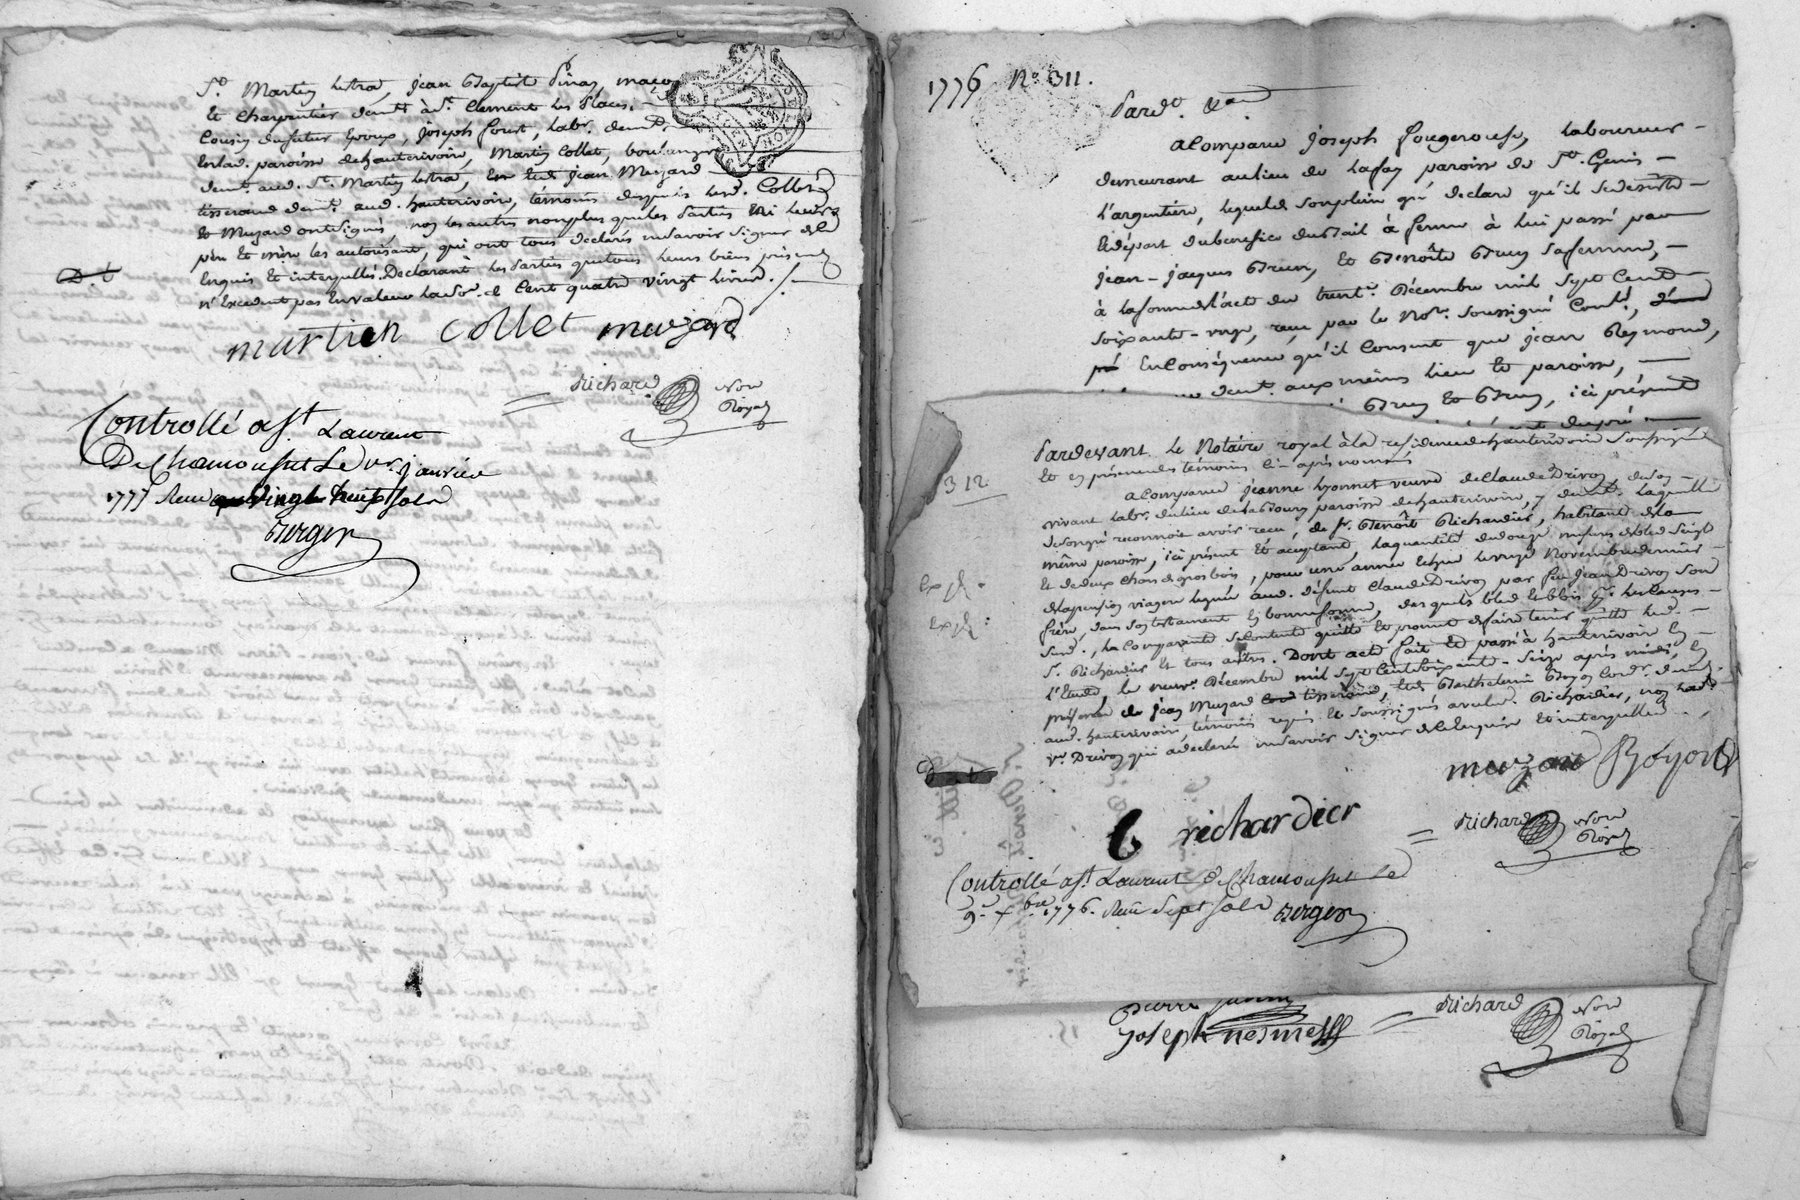 St. Martin Letra, jean Baptiste Pinay, maçon
et charpentier demt. à St. Clement les Places,
Cousin du futur Epoux, joseph , labr. demt.
en lad. paroisse dehauterivoire, Martin Collet, boulanger
demt. aud. St. Martin Letra, et led. jean Muzard
tisserand demt. aud. hauterivoire, témoins desquels lesd. Collet
et Muzard ont signés, non les autres non plus que les Parties ni leurs
père et mère les autorisant, qui ont tous declarés ne savoir signer de ce
Enquis et interpellés. Declarant les Parties que tous leurs biens
n'Excedent pas En valeur la so. de Cent quatre vingt livres. /.
D. t
martien collet muzard
Richard Nore
Royal
Controllé a St. Laurent
De Chamousset Le janvier
1777 Reçu vingt huit sols
Berger
1776 No. 311.
Pard. &a.
a Comparu joseph fougerouse, laboureur
demeurant au lieu de Lafay paroisse de St. Genis
L'argentiere, lequel de son plein gré declare qu'il se desiste
et départ du benefice du bail à ferme à lui passé par
jean-jacques Brun, et Benoîte Bruy sa femme,
à la forme de l'act du trente Décembre mil sept Cent
soixante-onze, reçu par le Nore. soussigné Contlé,
En Conséquence qu'il Consent que jean Reymond,
demt. aux mêmes lieu et paroisse,
Brun et Bruy, ici présent
312
Pardevant Le Notaire royal à la residence de hauterivoire soussigné
Et en présence des témoins Ci-après nommés
a Comparu jeanne Lyonnet veuve de Claude Drivon, de son
vivant labr. du lieu de paroisse de hauterivoire, y demt. Laquelle
de son gré reconnoit avoir reçu de Sr. Benoît Richardier, habitant de la
même paroisse, ici présent Et acceptant, la quantité de douze mesures de bled seigle
et de deux chars de gros bois, pour une année echue le onze Novembre dernier
de la pension viagere leguée aud. défunt Claude Drivon par feu jean Drivon son
frère, dans son testament En bonne forme, desquels bled et bois
Susd., La Comparante se Contente quitte et promet de faire tenir quitte led.
Sr. Richardier et tous autres. Dont acte fait et passé à hauterivoire En
l'Etude, le neuf Décembre mil sept Cent soixante-seize après midi, En
présence de jean Muzard tisserand, Et de Barthelemi Boyon Cordr. demt.
aud. hauterivoire, témoins requis et soussignés avec led. Richardier, non lad.
ve. Drivon qui a declaré ne savoir signer de ce Enquise et interpellée.
Exp.
Exp.
muzard Boyon
B richardier
Richard Nore
Royal
Controllé a St. Laurent de Chamousset Le
9. Xbre 1776. Reçu Sept sols Berger
pierre
Joseph nesme
Richard Nore
Royal